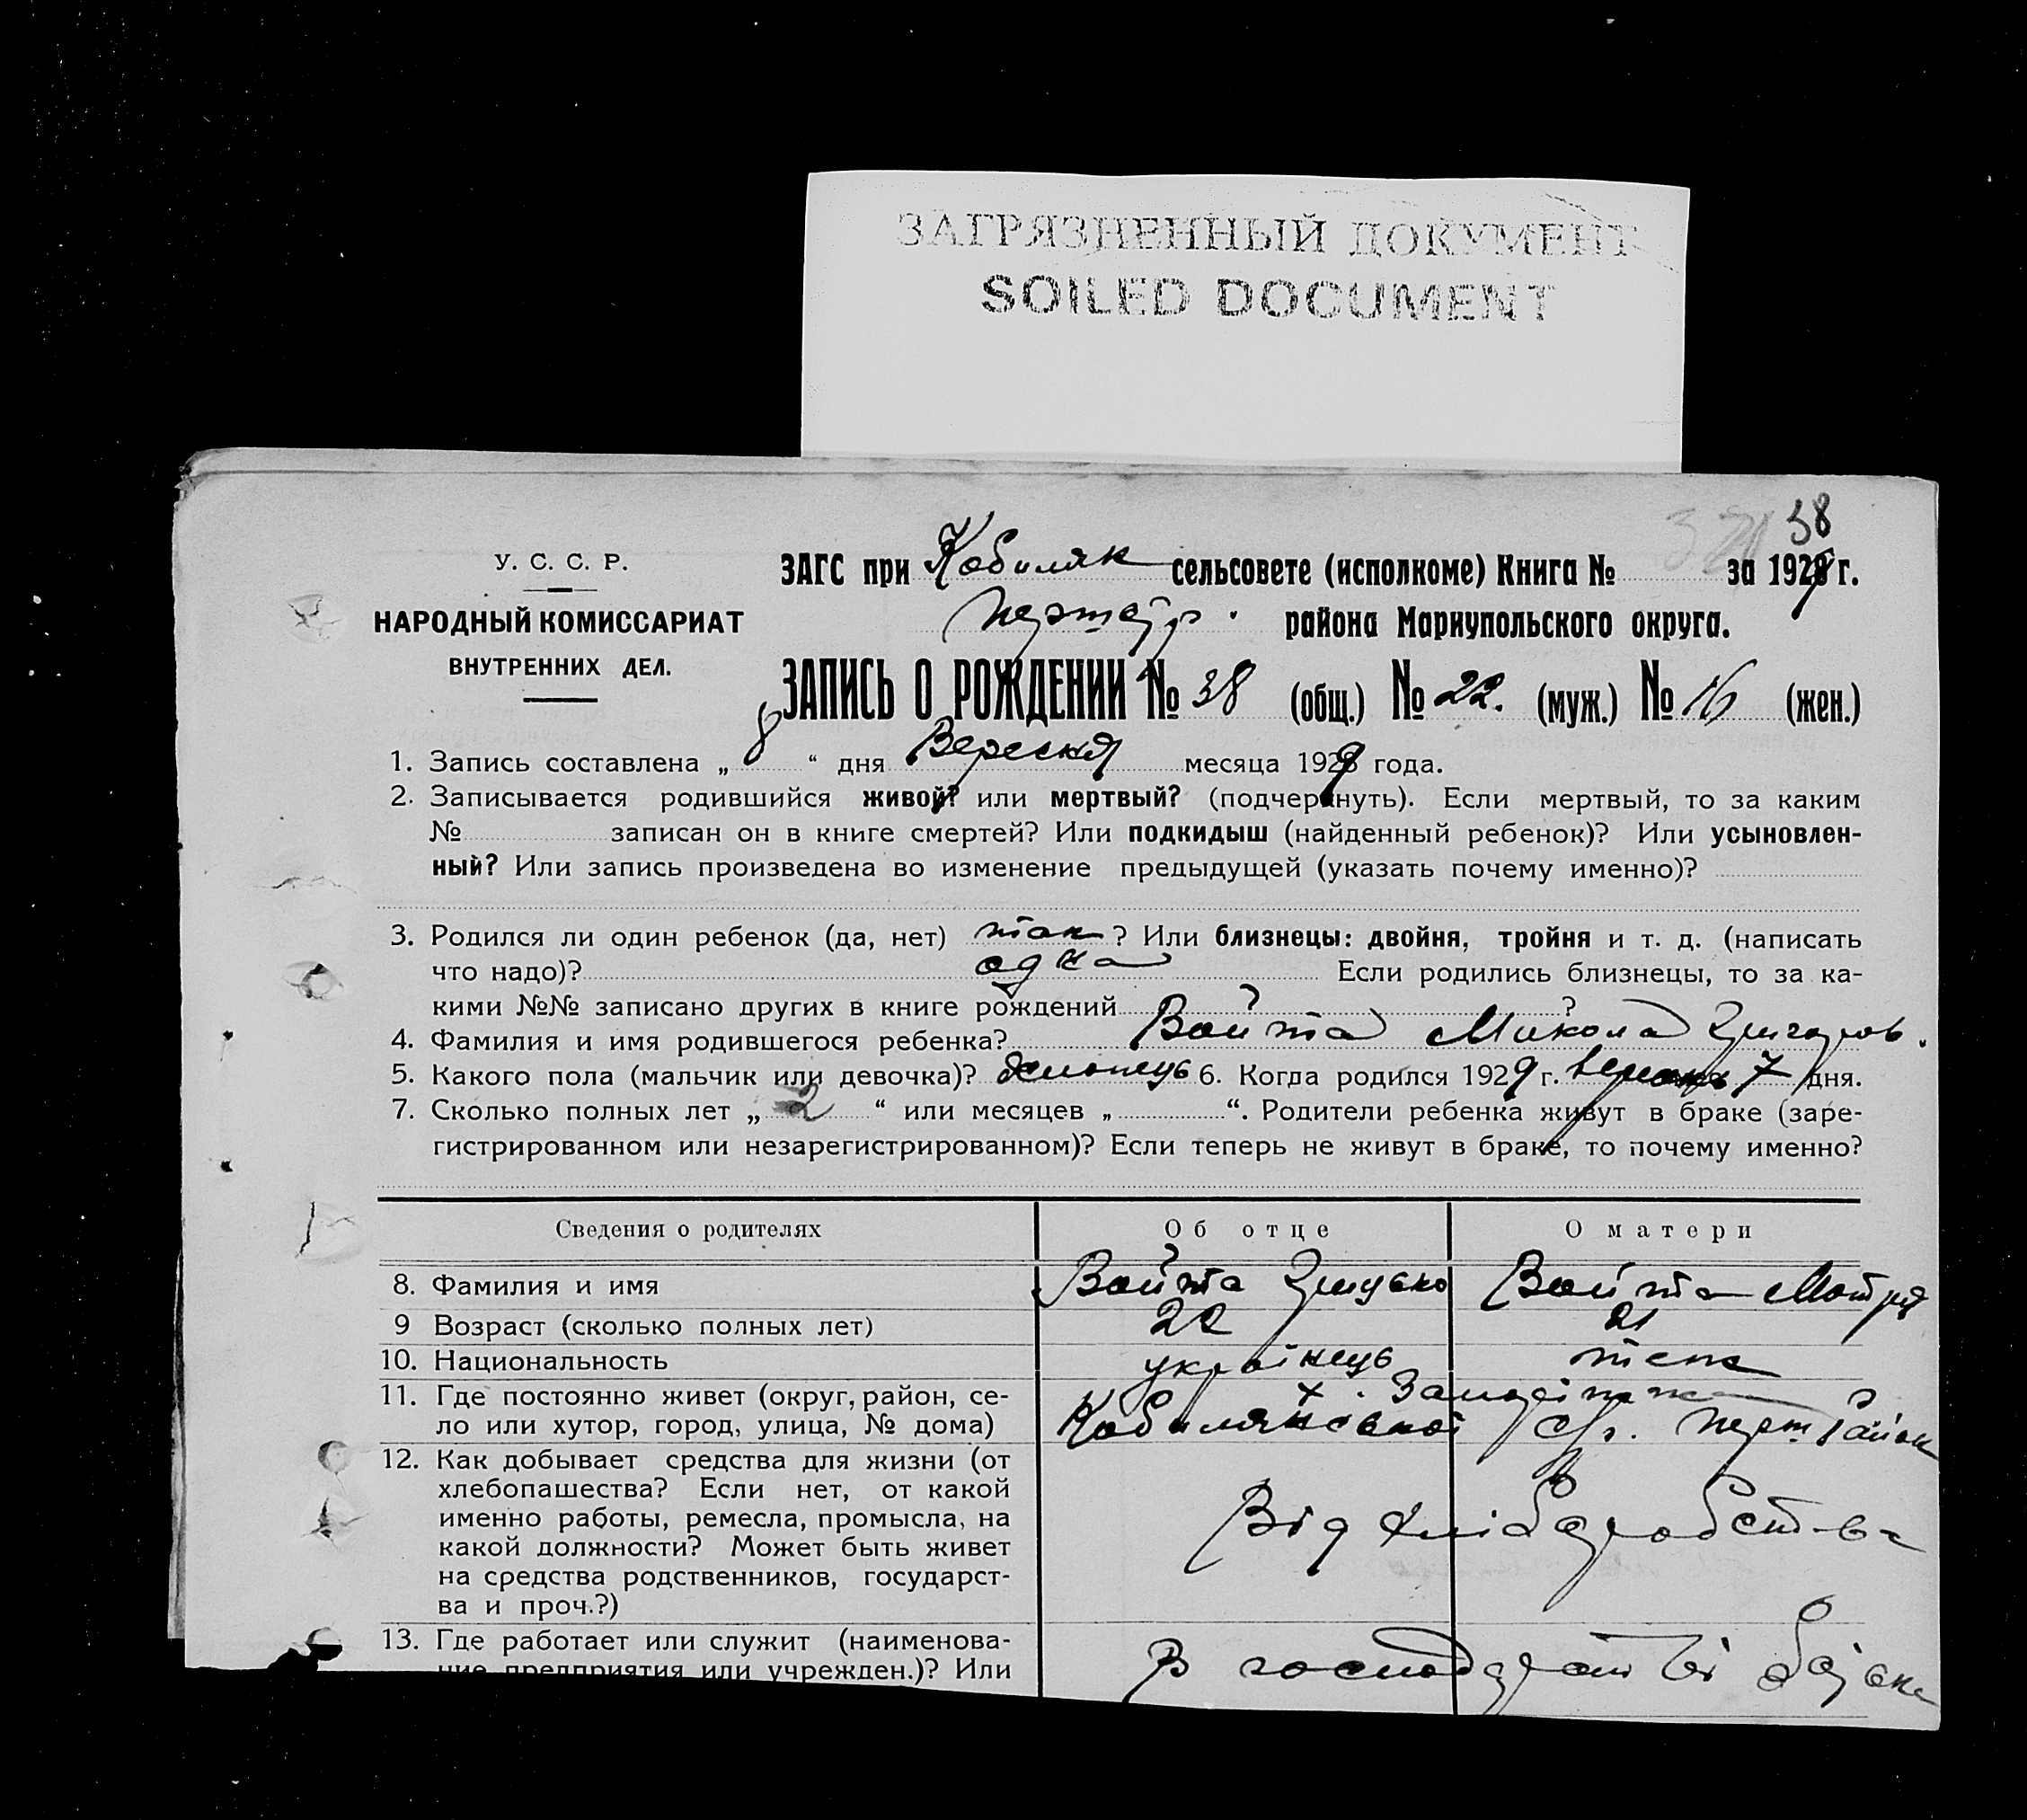 ЗАГРЯЗНЕННЫЙ ДОКУМЕНТ
SOILED DOCUMENT
38
У. С. С. Р.
НАРОДНЫЙ КОМИССАРИАТ
ВНУТРЕННИХ ДЕЛ.
ЗАГС при Кобиляк сельсовете (исполкоме) Книга № за 1929 г.
района Мариупольского округа.
ЗАПИСЬ О РОЖДЕНИИ № 38 (общ.) № 22. (муж.) № 16 (жен.)
1. Запись составлена „ 8 “ дня Вересня месяца 1929 года.
2. Записывается родившийся живой? или мертвый? (подчеркнуть). Если мертвый, то за каким
№ записан он в книге смертей? Или подкидыш (найденный ребенок)? Или усыновлен-
ный? Или запись произведена во изменение предыдущей (указать почему именно)?
3. Родился ли один ребенок (да, нет) так ? Или близнецы: двойня, тройня и т. д. (написать
что надо)? одна Если родились близнецы, то за ка-
кими №№ записано других в книге рождений ?
4. Фамилия и имя родившегося ребенка? Войта Микола Григоров.
5. Какого пола (мальчик или девочка)? хлопець 6. Когда родился 1929 г. 7 дня.
7. Сколько полных лет „ 2 “ или месяцев „ “. Родители ребенка живут в браке (заре-
гистрированном или незарегистрированном)? Если теперь не живут в браке, то почему именно?
Сведения о родителях Об отце О матери
8. Фамилия и имя Войта Грицько Войта Мотря
9 Возраст (сколько полных лет) 22 21
10. Национальность українець теж
11. Где постоянно живет (округ, район, се-
ло или хутор, город, улица, № дома) х. Кобиляцької с/р. Район
12. Как добывает средства для жизни (от
хлебопашества? Если нет, от какой
именно работы, ремесла, промысла, на
какой должности? Может быть живет
на средства родственников, государст-
ва и проч.?) Від хліборобства
13. Где работает или служит (наименова-
ние предприятия или учрежден.)? Или В господарстві